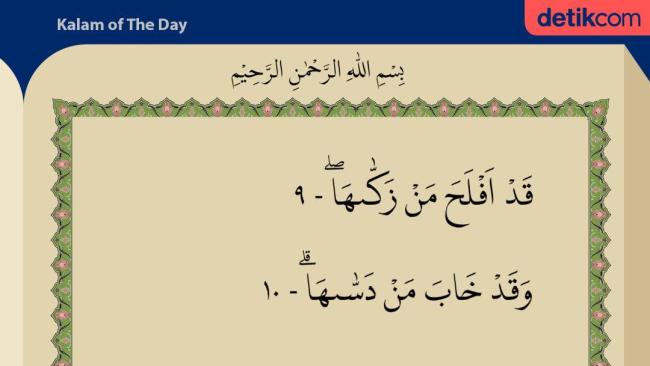 Kalam of The Day
detikcom
بِسْمِ اللّٰهِ الرَّحْمٰنِ الرَّحِيْمِ
قَدْ اَفْلَحَ مَنْ زَكّٰىهَاۖ - ٩
وَقَدْ خَابَ مَنْ دَسّٰىهَاۗ - ١٠